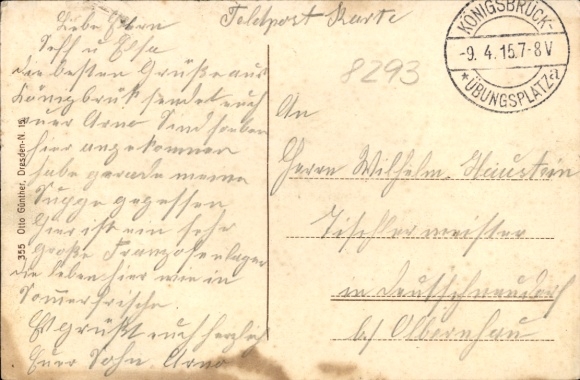 Feldpost Karte
KÖNIGSBRÜCK-
-9. 4. 15.7-8V
*ÜBUNGSPLATZ a
8293
Liebe Eltern
Seff u Elsa
die besten Grüße aus
Königbrük sendet euch
euer Arno Sind soeben
hier angekommen
habe gerade meine
Suppe gegessen
hier ist ein sehr
große Franzosenlager
die leben hier wie in
Somerfrische
Es grüßt euch herzlich
Euer Sohn Arno
An
Herrn Wilhelm Haustein
Tischlermeister
in Deutschneudorf
b/ Olbernhau
355 Otto Günther, Dresden-N. 15